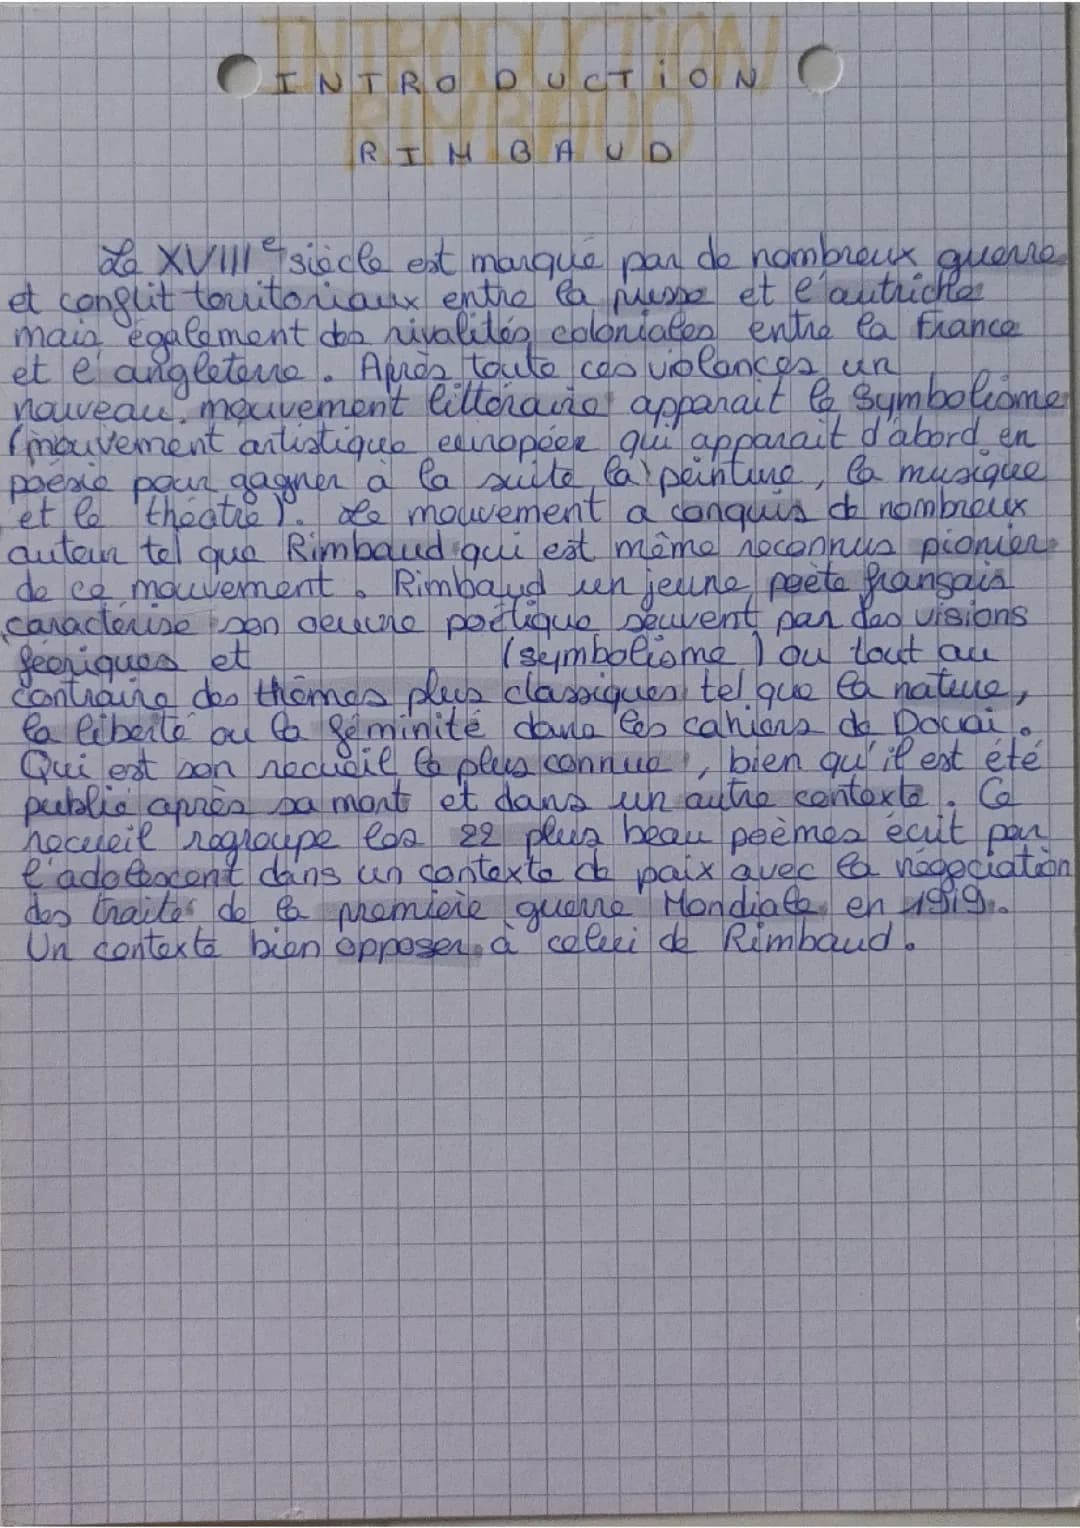 INTRODUCTION
RIMBAUD
Le XVIIIe siècle est marqué par de nombreux guerre
et conflit territoriaux entre la prusse et l'autriche
mais également des rivalités coloniales entre la France
et l'angleterre. Après toute ces violences un
nouveau mouvement littéraire apparait le symbolisme
(mouvement artistique européen qui apparait d'abord en
poésie pour gagner à la suite la peinture, la musique
et le théâtre). Le mouvement a conquis de nombreux
auteur tel que Rimbaud qui est même reconnus pionier
de ce mouvement. Rimbaud un jeune poète français
caractérise son oeuvre poétique souvent par des visions
féeriques et (symbolisme) ou tout au
contraire des thèmes plus classiques tel que la nature,
la liberté ou la féminité dans les cahiers de Douai.
Qui est son recueil le plus connue, bien qu'il est été
publié après sa mort et dans un autre contexte. Ce
recueil regroupe les 22 plus beau poèmes écrit par
l'adolescent dans un contexte de paix avec la négociation
des traités de la première guerre Mondiale en 1919.
Un contexte bien opposer à celui de Rimbaud.